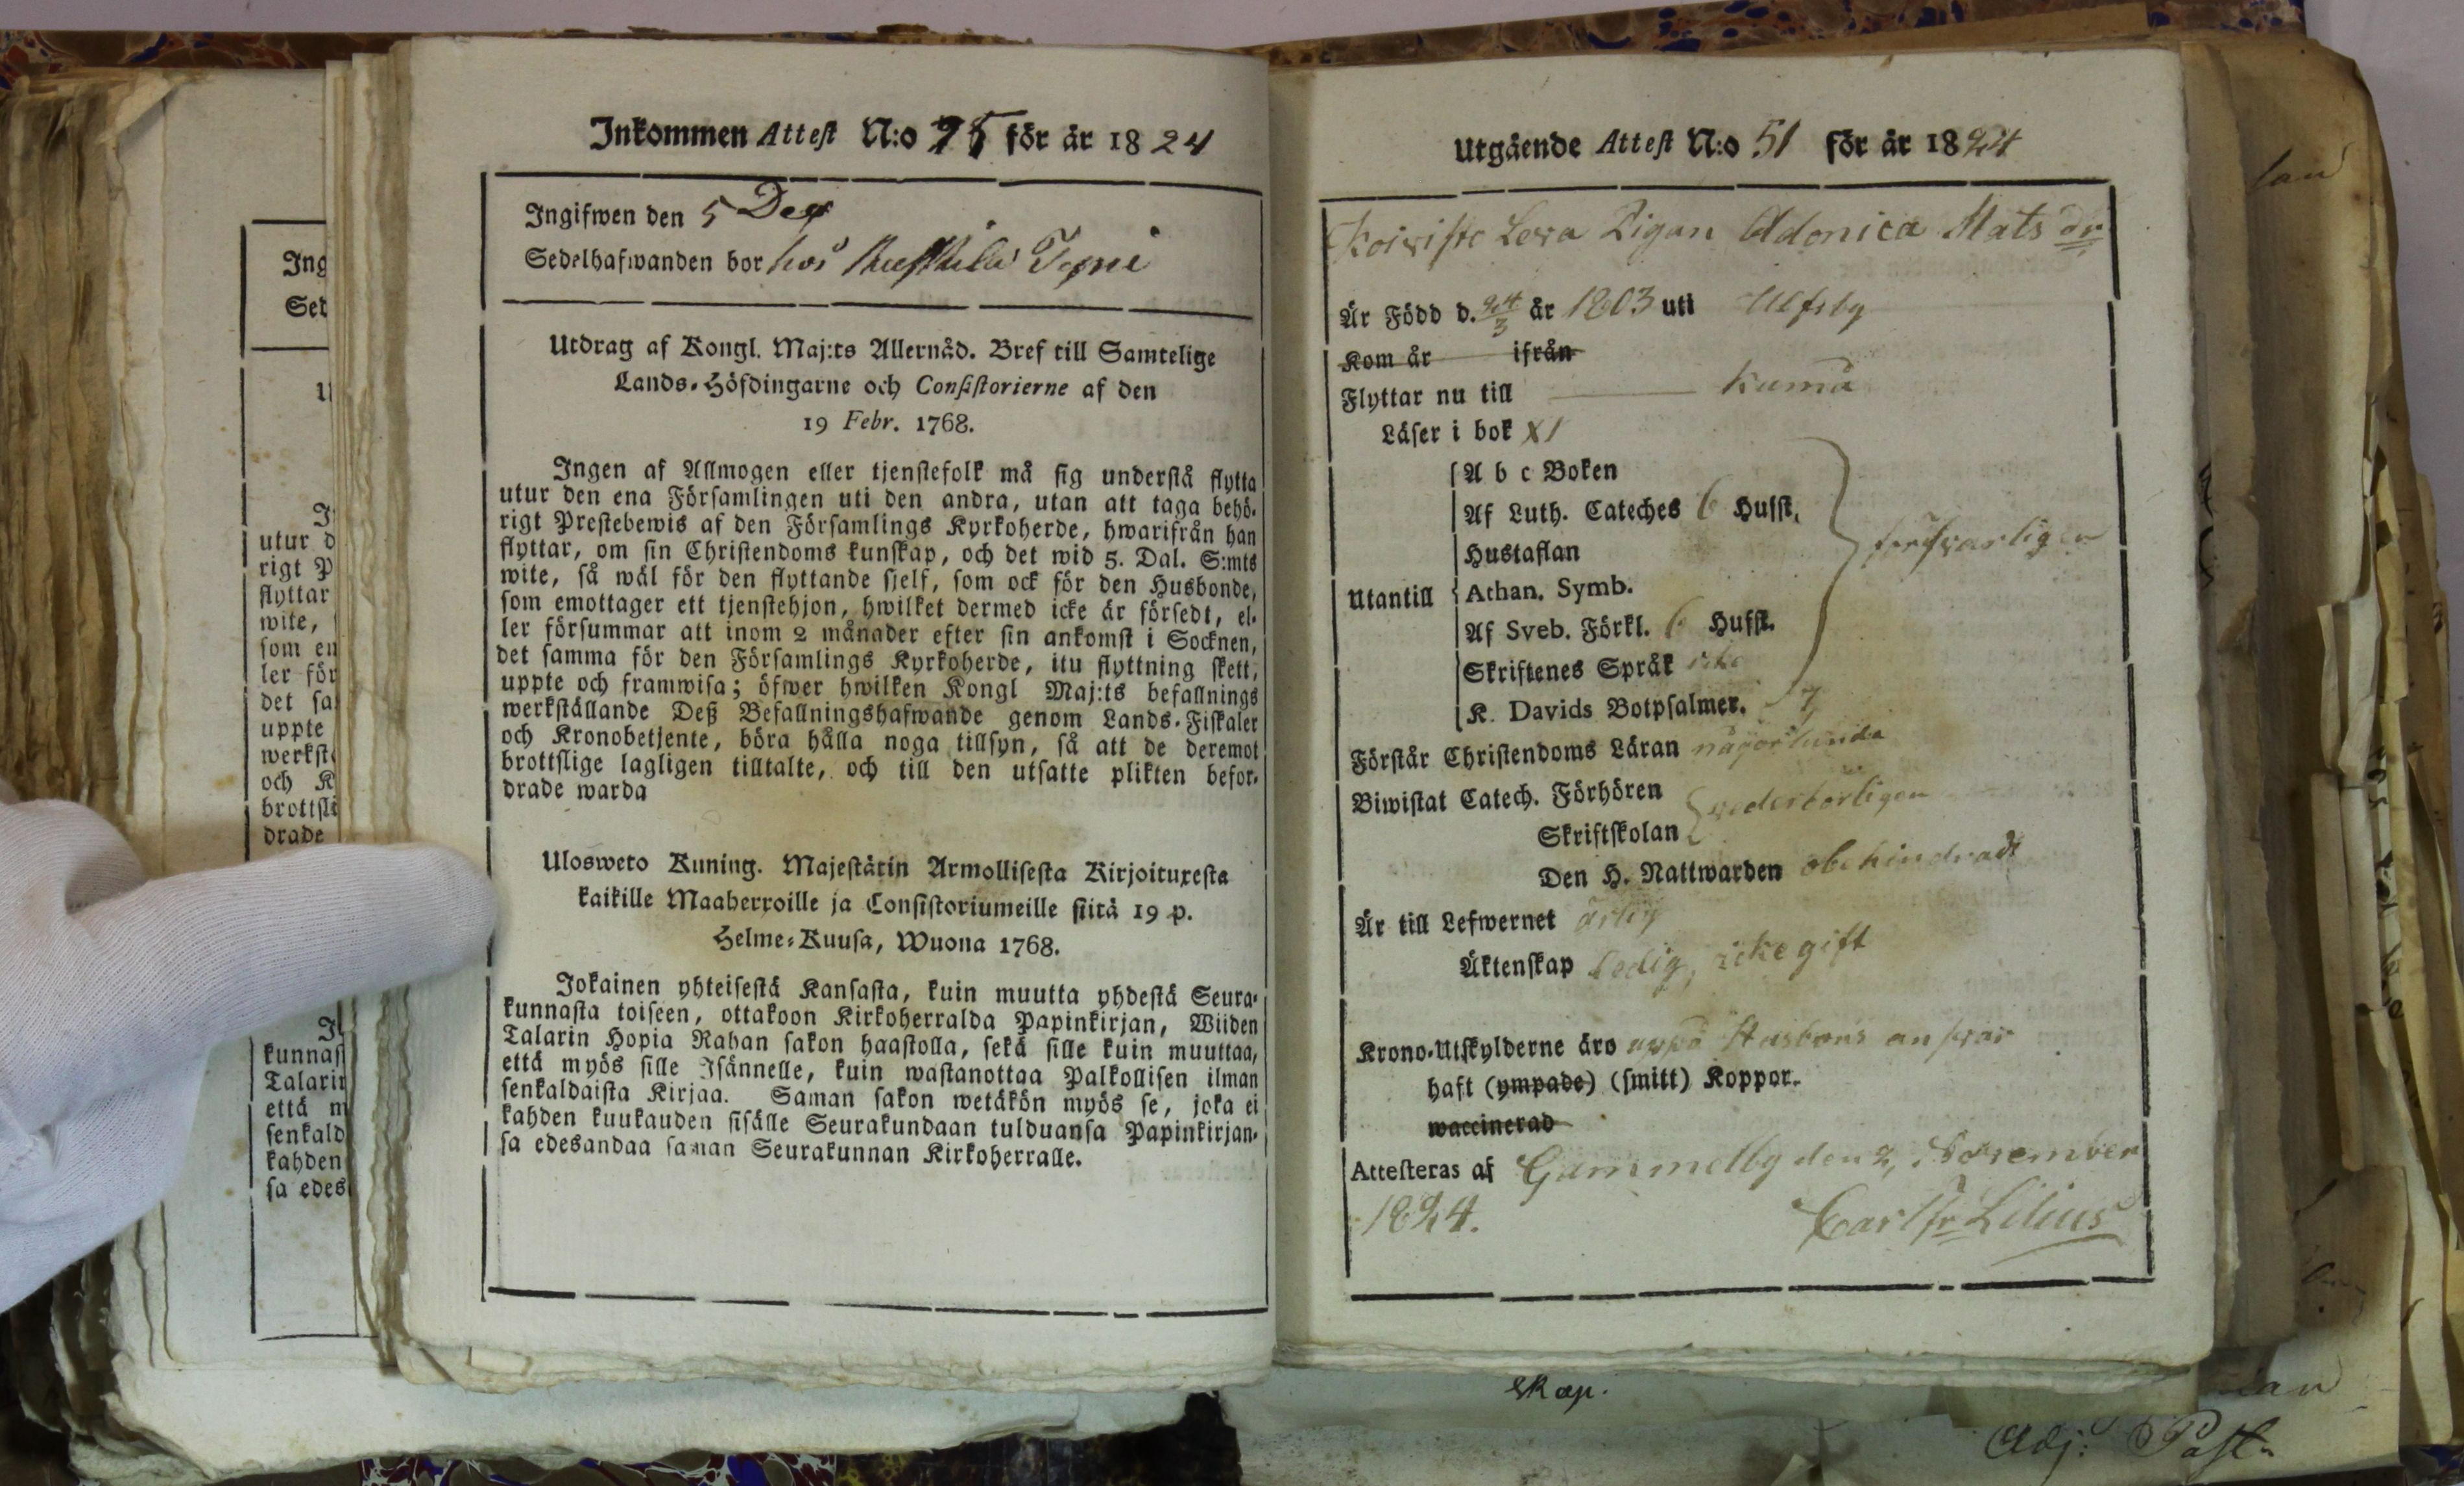 Inkommen Attest N:o 75 för år 1824
Ingifwen den 5 Dec
Sedelhafwanden bor hos
Utdrag af Kongl. Maj:ts Allernåd. Bref till Samtelige
Lands-Höfdingarne och Consistorierne af den
19 Febr. 1768.
Ingen af Allmogen eller tjenstefolk må sig understå flytta
utur den ena Församlingen uti den andra, utan att taga behö-
rigt Prestebewis af den Församlings Kyrkoherde, hwarifrån han
flyttar, om sin Christendoms kunskap, och det wid 5. Dal. S:mts
wite, så wäl för den flyttande sjelf, som ock för den Husbonde,
som emottager ett tjenstehjon, hwilket dermed icke är försedt, el-
ler försummar att inom 2 månader efter sin ankomst i Socknen,
det samma för den Församlings Kyrkoherde, itu flyttning skett,
uppte och framwisa; öfwer hwilken Kongl Maj:ts befallnings
werkställande Deß Befallningshafwande genom Lands-Fiskaler
och Kronobetjente, böra hålla noga tillsyn, så att de deremot
brottslige lagligen tilltalte, och till den utsatte plikten befor-
drade warda
Ulosweto Kuning. Majestätin Armollisesta Kirjoituxesta
kaikille Maaherroille ja Consistoriumeille siitä 19 p.
Helme-Kuusa, Wuona 1768.
Jokainen yhteisestä Kansasta, kuin muutta yhdestä Seura-
kunnasta toiseen, ottakoon Kirkoherralda Papinkirjan, Wiiden
Talarin Hopia Rahan sakon haastolla, sekä sille kuin muuttaa,
että myös sille Isännelle, kuin wastanottaa Palkollisen ilman
senkaldaista Kirjaa. Saman sakon wetäkön myös se, joka ei
kahden kuukauden sisälle Seurakundaan tulduansa Papinkirjan-
sa edesandaa saman Seurakunnan Kirkoherralle.
Utgående Attest N:o 51 för år 1824
Koivisto Lera Pigan Adonica Mats dr
Är Född d. 24/3 år 1803 uti Ulfsby
Kom år ifrån
Flyttar nu till Kumå
Läser i bok XI
Utantill
A b c Boken
Af Luth. Cateches 6 Hufst.
Hustaflan
Athan. Symb.
Af Sveb. Förkl. 6 Hufst.
Skriftenes Språk
K. Davids Botpsalmer. 7
försvarligen
Förstår Christendoms Läran någorlunda
Biwistat Catech. Förhören
Skriftskolan
vederbörligen
Den H. Nattwarden obehindradt
Är till Lefwernet ärlig
Äktenskap ledig, icke gift
Krono-Utskylderne äro uppå Husbons ansvar
haft (ympade) (smitt) Koppor.
waccinerad
Attesteras af Gammelby den 2 November
1824. Carl Fr Lilius
skap.
Adj: Past.